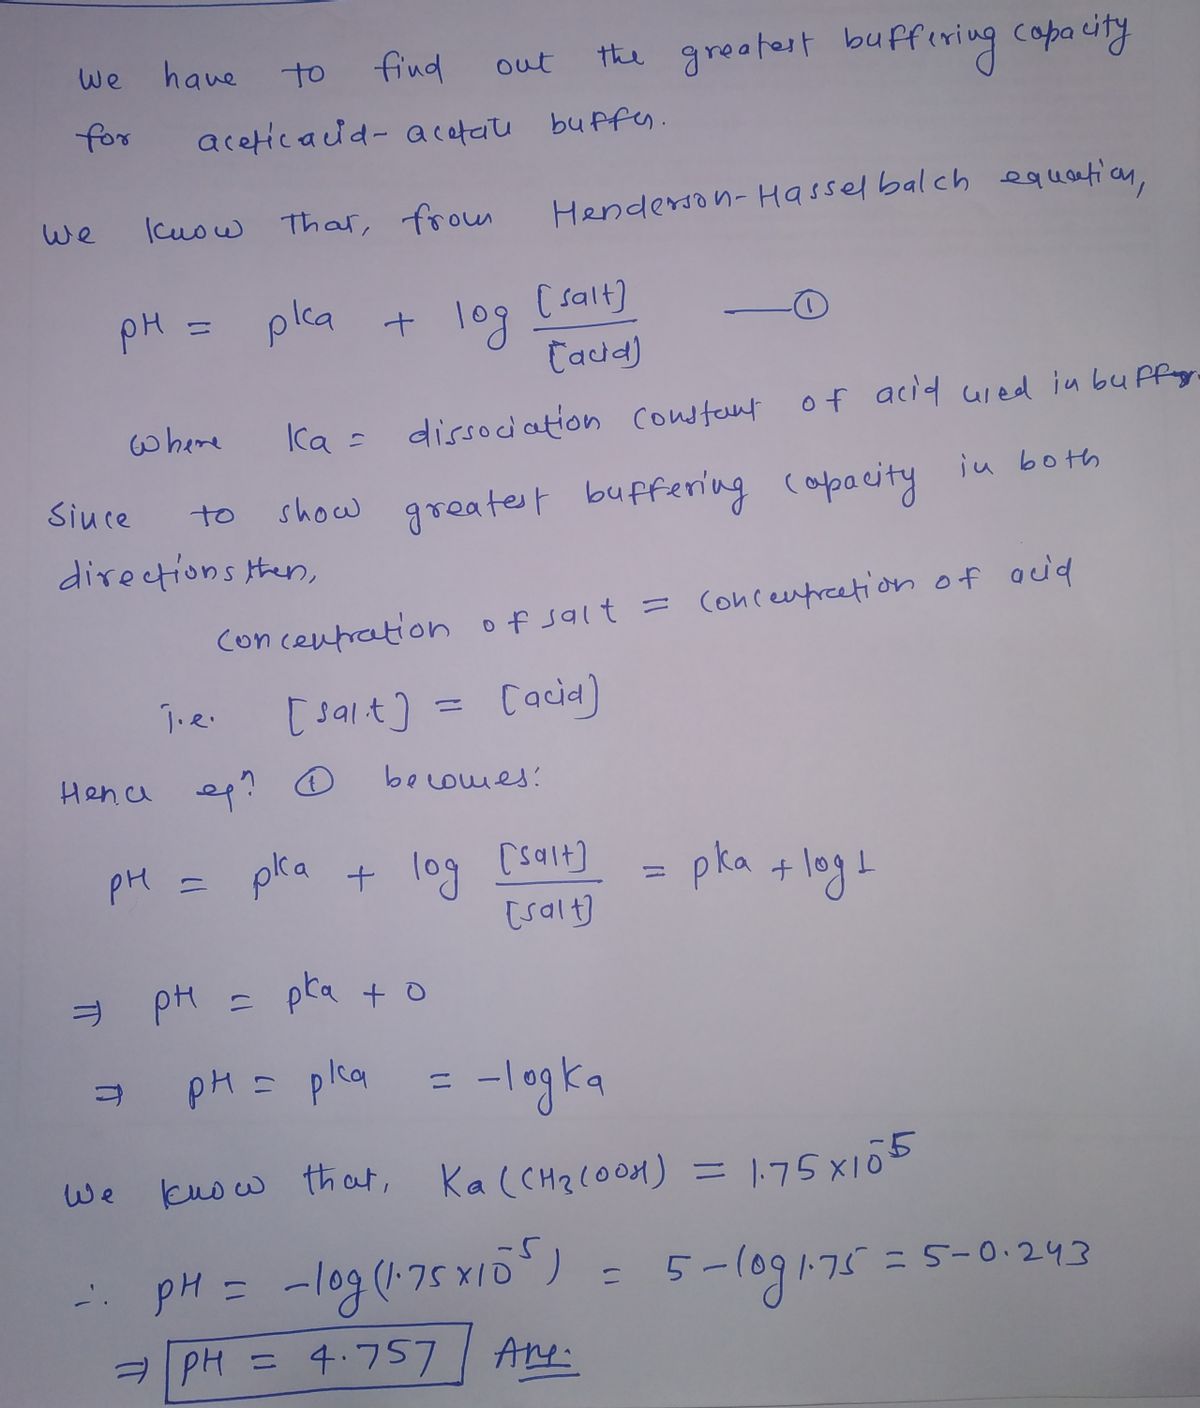 We have to find out the greatest buffering capacity
for acetic acid - acetate buffer.
We know that, from Henderson-Hasselbalch equation,
pH = pKa + log [salt]/[acid] —①
where Ka = dissociation constant of acid used in buffer.
Since to show greatest buffering capacity in both
directions then,
concentration of salt = concentration of acid
i.e. [salt] = [acid]
Hence eqn ① becomes:
pH = pKa + log [salt]/[salt] = pKa + log 1
⇒ pH = pKa + 0
⇒ pH = pKa = -log Ka
We know that, Ka (CH3COOH) = 1.75 × 10^-5
∴ pH = -log (1.75 × 10^-5) = 5 - log 1.75 = 5 - 0.243
⇒ pH = 4.757 Ans.